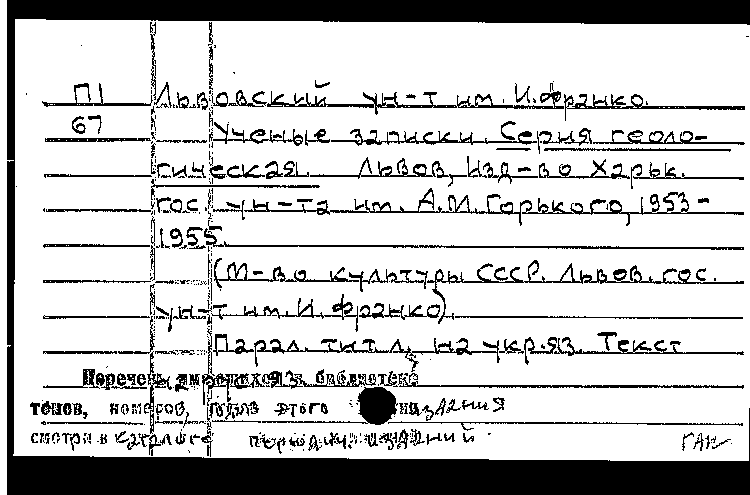 П1 Львовский ун-т им. И. Франко.
67 Ученые записки. Серия геоло-
гическая. Львов, Изд-во Харьк.
гос. ун-та им. А.М. Горького, 1953-
1955.
(М-во культуры СССР. Львов. гос.
ун-т им. И. Франко).
Парал. тит. л. на укр. яз. Текст
Перечень имеющихся в библиотеке
томов, номеров, этого издания
смотри в каталоге периодич. изданий.
ГАН